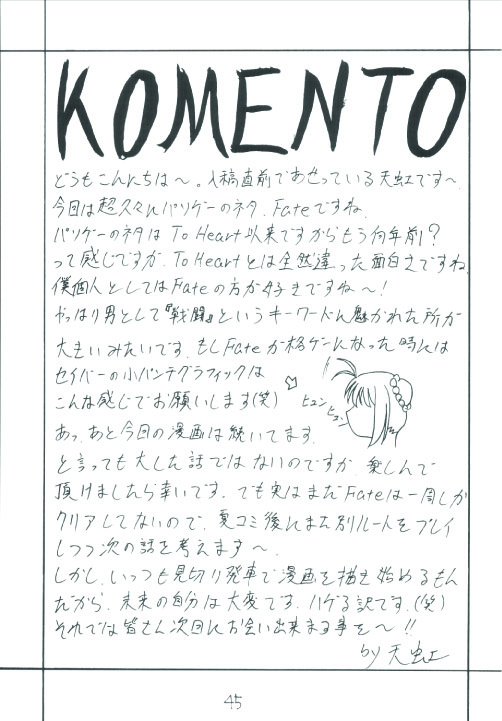 KOMENTO
どうもこんにちは〜。入稿直前であせっている天虹です〜。
今回は超久々にパソゲーのネタ、Fateですね。
パソゲーのネタは To Heart以来ですからもう何年前?
って感じですが、To Heartとは全然違った面白さですね。
僕個人としてはFateの方が好きですね〜!
やっぱり男として『戦闘』というキーワードに魅かれた所が
大きいみたいです。もしFateが格ゲーになった時には
セイバーの小パンチグラフィックは
こんな感じでお願いします(笑)
ヒュン
ヒュン
あっ、あと今回の漫画は続いてます。
と言っても大した話ではないのですが、楽しんで
頂けましたら幸いです。でも実はまだFateは一周しか
クリアしてないので、夏コミ後にまた別ルートをプレイ
しつつ次の話を考えます〜。
しかし、いっつも見切り発車で漫画を描き始めるもん
だから、未来の自分は大変です。ハゲる訳です。(笑)
それでは皆さん次回にお会い出来ます事を〜!!
by 天虹
45